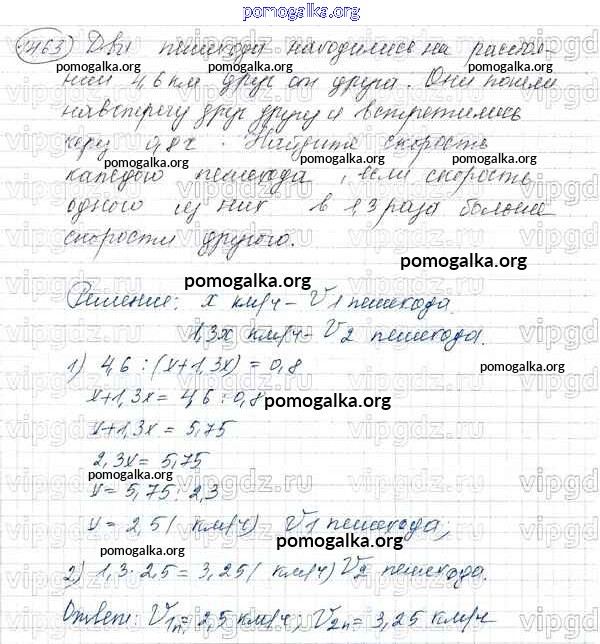 pomogalka.org
1463) Два пешехода находились на расстоя-
нии 4,6 км друг от друга. Они пошли
навстречу друг другу и встретились
через 0,8 ч. Найдите скорость
pomogalka.org pomogalka.org pomogalka.org
каждого пешехода, если скорость
одного из них в 1,3 раза больше
скорости другого.
pomogalka.org
pomogalka.org
Решение: x км/ч – V1 пешехода.
1,3x км/ч – V2 пешехода.
1) 4,6 : (x+1,3x) = 0,8
pomogalka.org
x+1,3x = 4,6 : 0,8
pomogalka.org
x+1,3x = 5,75
2,3x = 5,75
pomogalka.org
x = 5,75 : 2,3
x = 2,5 (км/ч) V1 пешехода;
pomogalka.org
pomogalka.org
2) 1,3 · 2,5 = 3,25 (км/ч) V2 пешехода.
pomogalka.org
Ответ: V1п = 2,5 км/ч, V2п = 3,25 км/ч